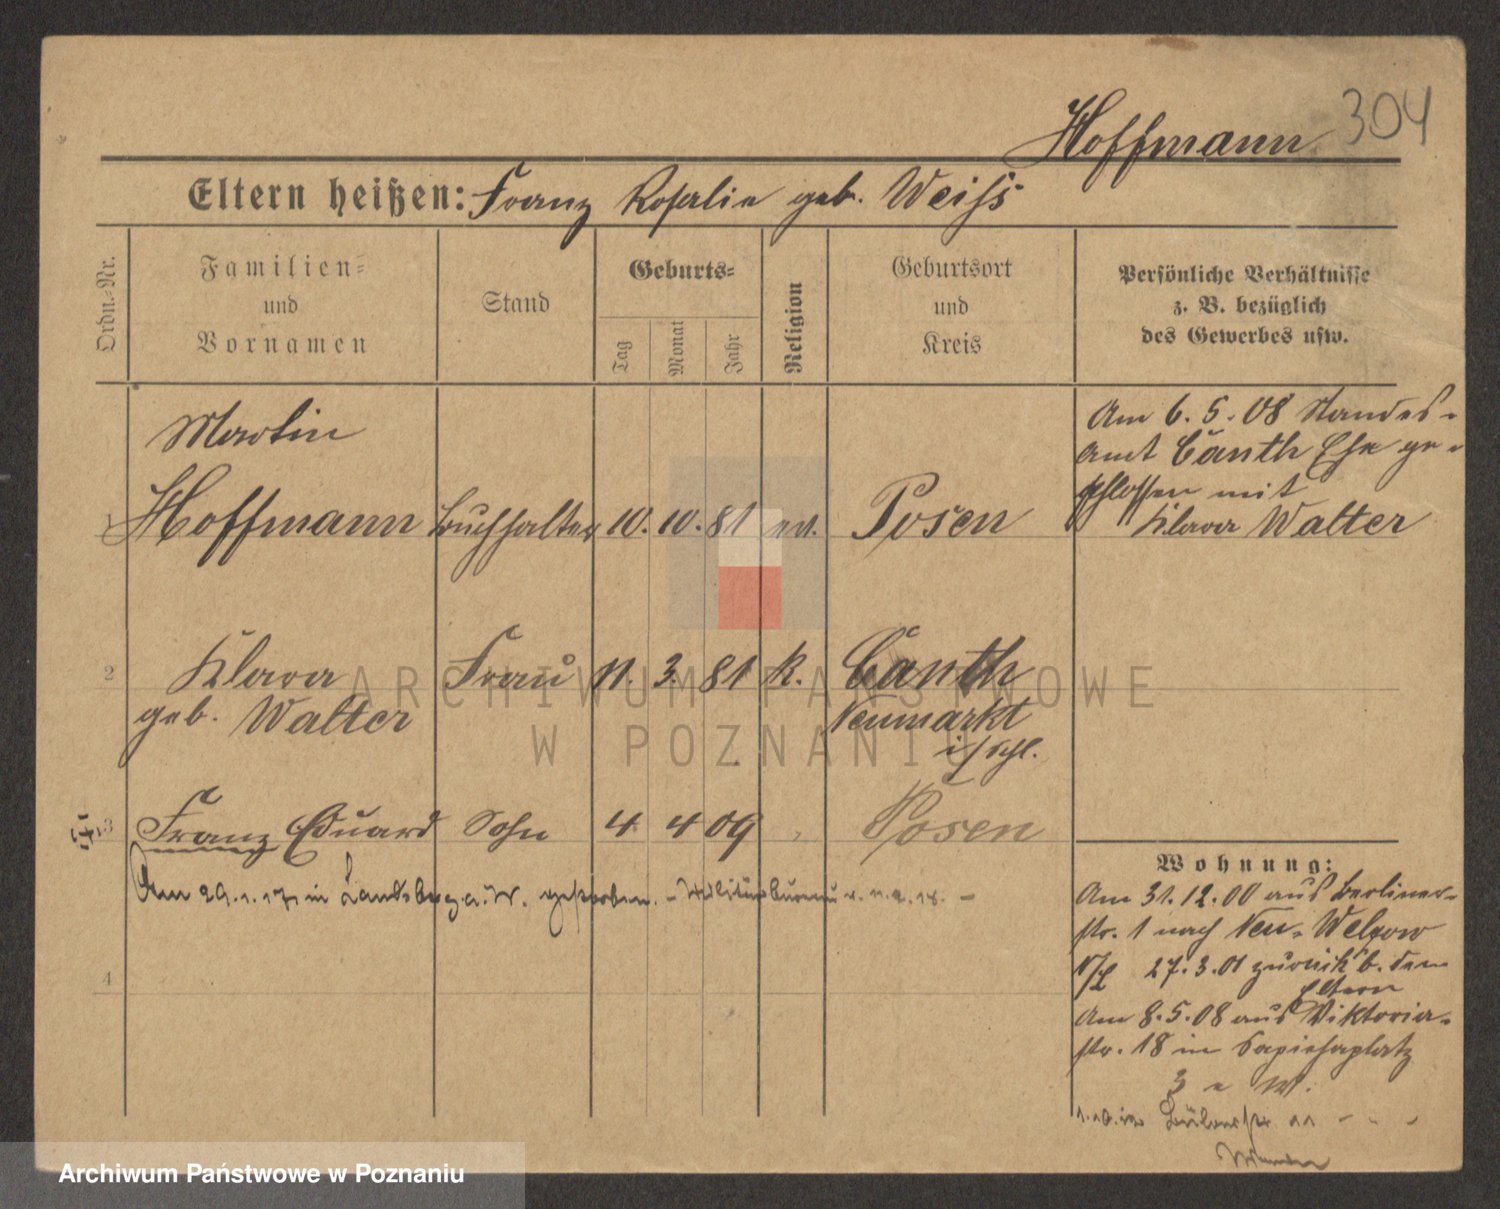 Hoffmann 304
Eltern heißen: Franz Rosalie geb. Weiss
Ordn.-Nr.
Familien-
und
Vornamen
Stand
Geburts-
Tag
Monat
Jahr
Religion
Geburtsort
und
Kreis
Persönliche Verhältnisse
z. B. bezüglich
des Gewerbes usw.
Martin
1 Hoffmann Buchhalter 10. 10. 81 ev. Posen
Am 6. 5. 08 Standes-
amt Canth Ehe ge-
schlossen mit
Klara Walter
2 Klara Frau 11. 3. 81 k. Canth
geb. Walter Neumarkt
i/Schl.
3 Franz Eduard Sohn 4 4 09 Posen
Am 29. 1. 17 in Landsberg a. W. gestorben. - Militärbüro
4
Wohnung:
Am 31. 12. 00 aus Berliner-
str. 1 nach Neu-Welzow
N/L 27. 3. 01 zurück b. den
Eltern
Am 8. 5. 08 aus Viktoria-
str. 18 in Sapiehaplatz
3 e W.
ARCHIWUM PAŃSTWOWE
W POZNANIU
Archiwum Państwowe w Poznaniu